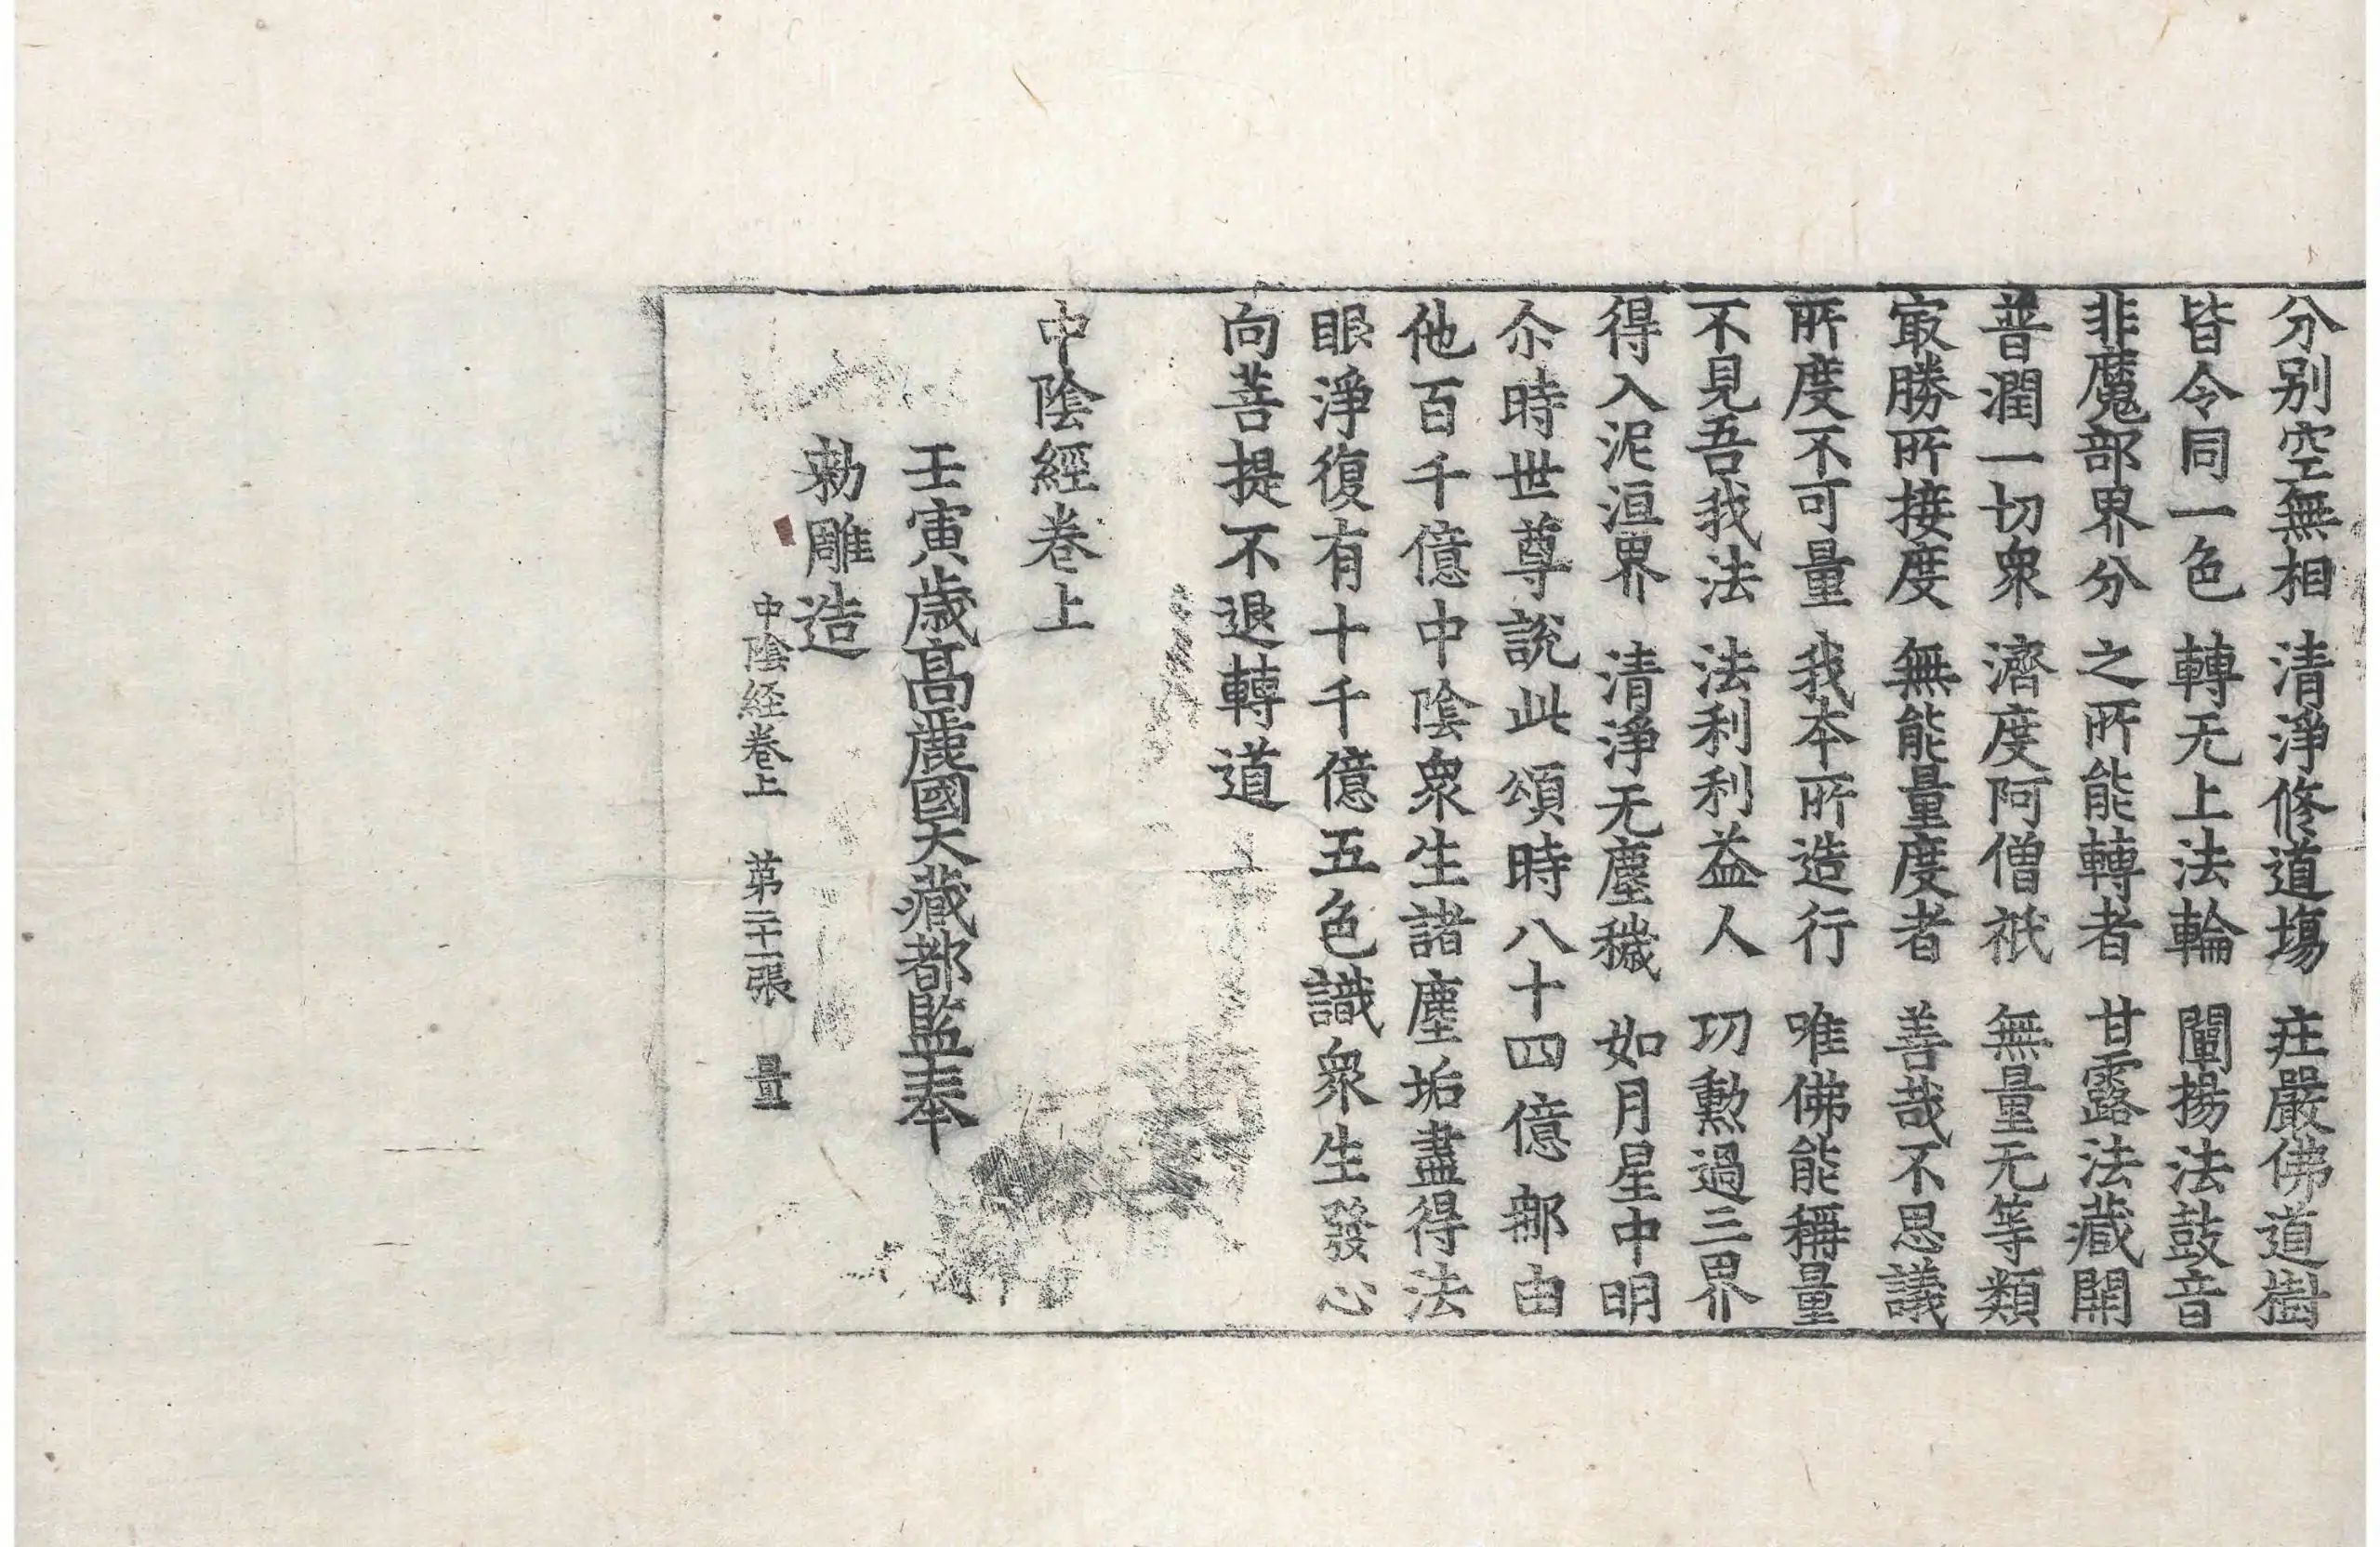 分别空無相 清淨修道塲 㽵嚴佛道樹
皆令同一色 轉无上法輪 闡揚法鼓音
非魔部界分 之所能轉者 甘露法藏開
普潤一切衆 濟度阿僧祇 無量无等類
㝡勝所接度 無能量度者 善哉不思議
所度不可量 我夲所造行 唯佛能稱量
不見吾我法 法利利益人 功勲過三界
得入泥洹界 清淨无塵穢 如月星中明
尒時世尊說此頌時八十四億那由
他百千億中陰衆生諸塵垢盡得法
眼淨復有十千億五色識衆生發心
向菩提不退轉道
中陰經卷上
壬寅歲高麗國大藏都監奉
勅雕造
中陰経卷上 苐二十一張 量